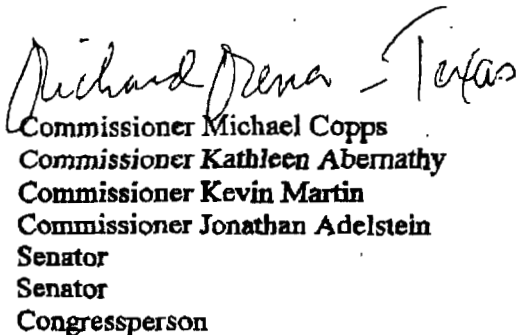 Richard – Texas
Commissioner Michael Copps
Commissioner Kathleen Abernathy
Commissioner Kevin Martin
Commissioner Jonathan Adelstein
Senator
Senator
Congressperson